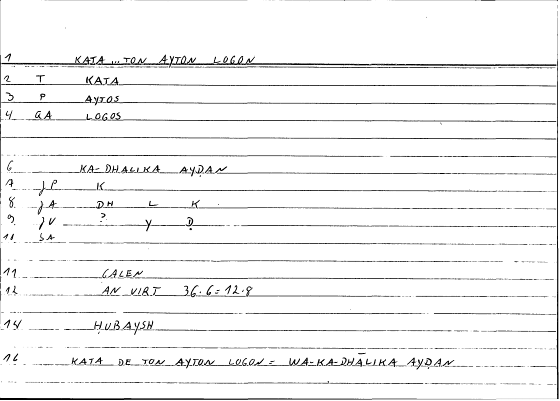 1 KATA ... TON AYTON LOGON
2 T KATA
3 P AYTOS
4 GA LOGOS
6 KA-DHALIKA AYḌAN
7 JP K
8 JA DH L K
9 JV ? Y Ḍ
10 SA
11 GALEN
12 AN VIRT 36.6 = 12.8
14 ḤUBAYSH
16 KATA DE TON AYTON LOGON = WA-KA-DHĀLIKA AYḌAN